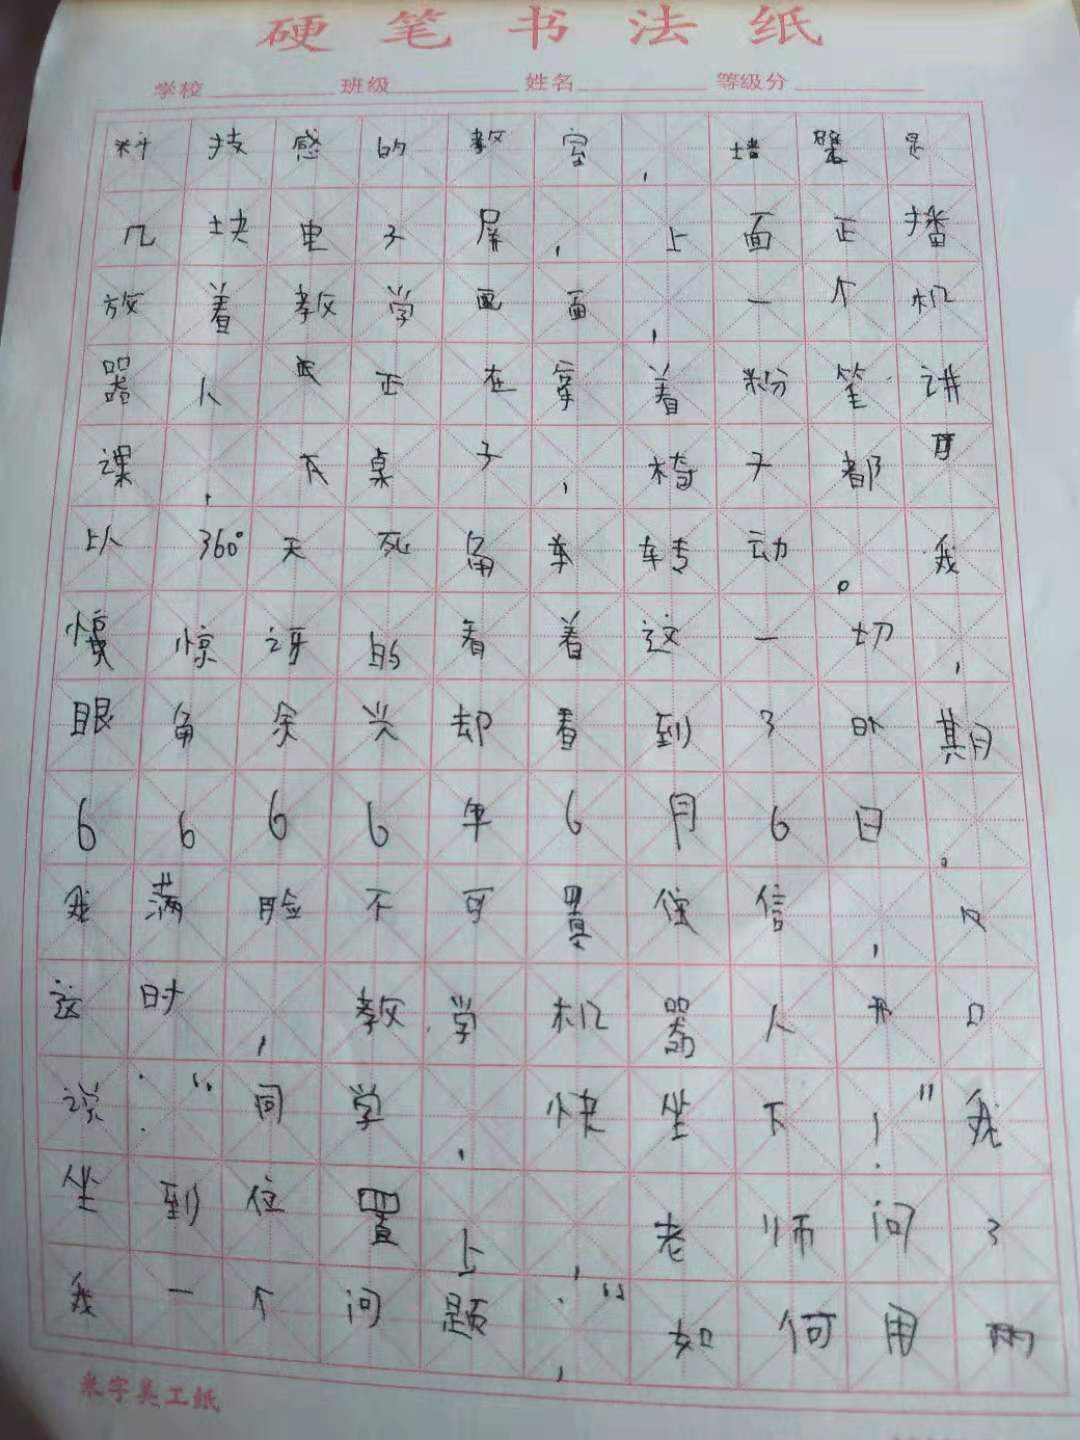 硬笔书法纸
学校 班级 姓名 等级分
科技感的教室，墙壁是
几块电子屏，上面正播
放着教学画面，一个机
器人正在拿着粉笔讲
课，桌子，椅子都可
以360°无死角转动。我
惊讶的看着这一切，
眼角余光却看到了日期
6666年6月6日。
我满脸不可置信，只
这时，教学机器人开口
说：“同学，快坐下！”我
坐到位置上，老师问了
我一个问题：“如何用两
米字美工纸